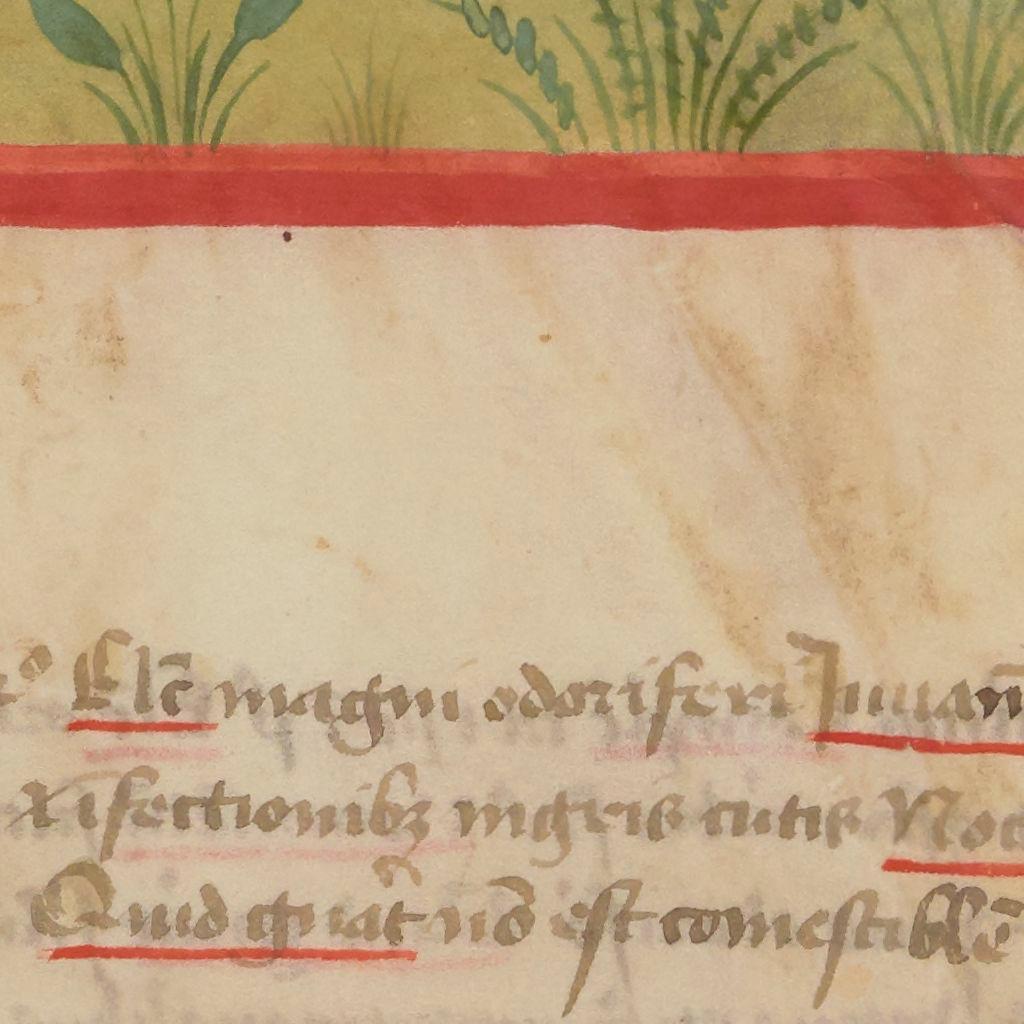 Elc̄ magni odoriferi Iuuam̄
⁊ īfectionibꝫ nigris cutis Noc
Quid gn̄at nō est comestiblē